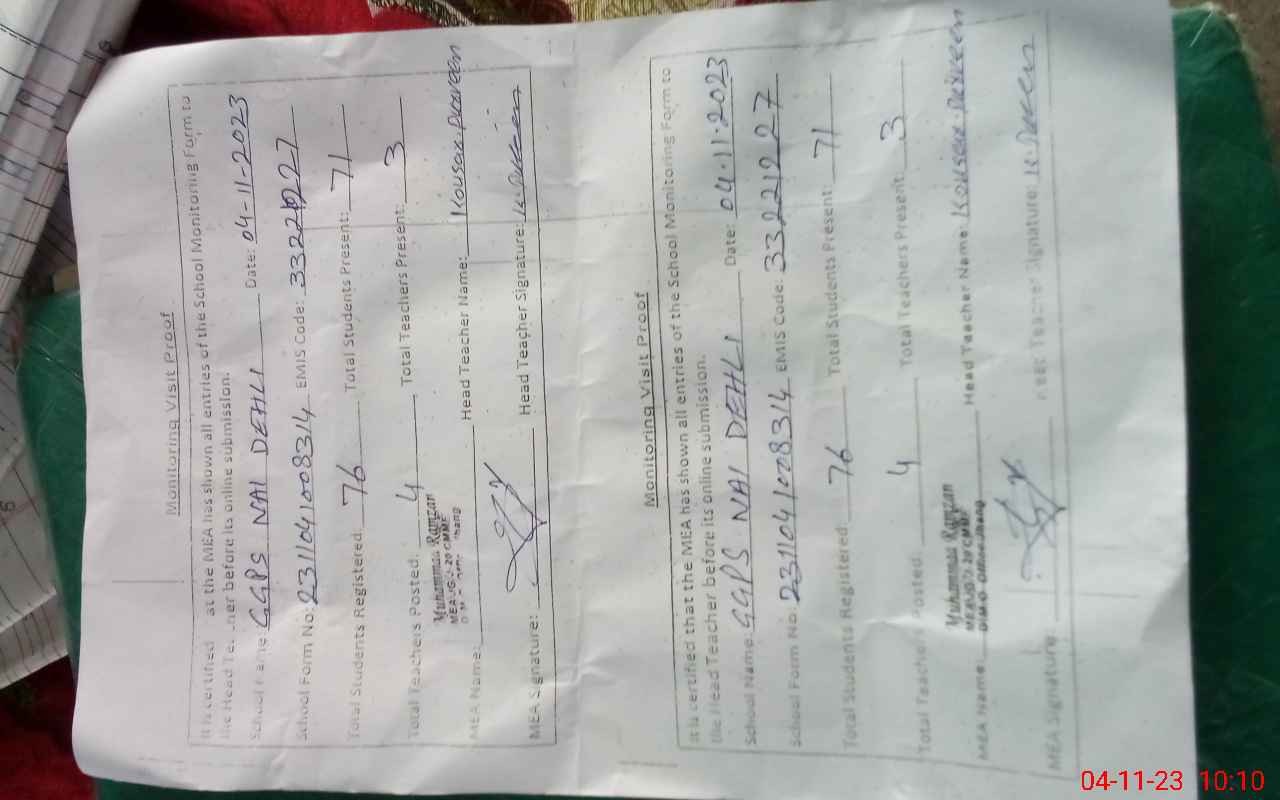 Monitoring Visit Proof
It is certified at the MEA has shown all entries of the School Monitoring Form to
the Head Te ner before its online submission.
School Name GGPS NAI DEHLI Date: 04-11-2023
School Form No: 23110410083/4 EMIS Code: 33221227
Total Students Registered: 76 Total Students Present: 71
Total Teachers Posted: 4 Total Teachers Present: 3
Muhammad Ramzan
MEA Name: Head Teacher Name: Kousar Praveen
MEA Signature: Head Teacher Signature:
Monitoring Visit Proof
It is certified that the MEA has shown all entries of the School Monitoring Form to
the Head Teacher before its online submission.
School Name: GGPS NAI DEHLI Date: 04.11.2023
School Form No: 23110410083/4 EMIS Code: 33221227
Total Students Registered: 76 Total Students Present: 71
Total Teachers Posted 4 Total Teachers Present: 3
Muhammad Ramzan
MEA Name: Head Teacher Name: Kousar Perveen
MEA Signature: Head Teacher Signature:
04-11-23 10:10